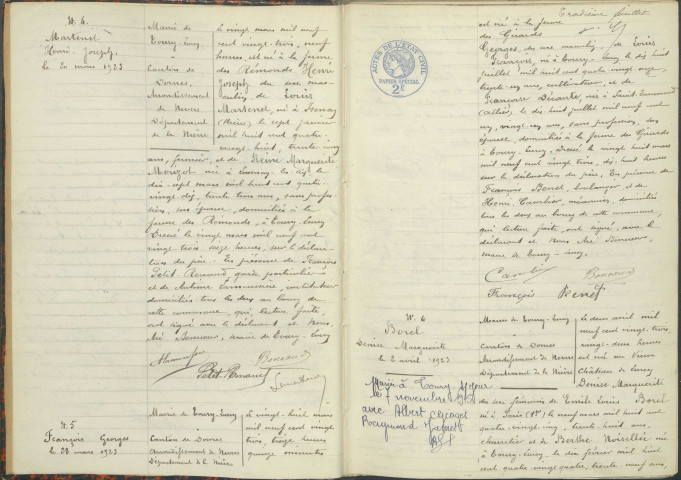 N. 6.
Martenet
Henri Joseph
le 20 mars 1923
Mairie de
Toury-Lurcy
Canton de
Dornes
Arrondissement
de Nevers
Département
de la Nièvre
le vingt mars mil neuf
cent vingt trois, neuf
heures, est né à la ferme
des Rémonds Henri
Joseph du sexe mas-
culin de Louis
Martenet, né à
(Nièvre) le sept janvier
mil huit cent quatre
vingt huit, trente cinq
ans, fermier, et de Reine Marguerite
née à le
dix sept mars mil huit cent quatre
vingt dix, trente trois ans, sans profes-
sion, son épouse, domiciliés à la
ferme des Rémonds, à Toury-Lurcy
Dressé le vingt mars mil neuf cent
vingt trois seize heures, sur la déclara-
tion du père. En présence de François
Petit Renaud, garde particulier
et de Antoine instituteur
domiciliés tous les deux au bourg de
cette commune, qui, lecture faite,
ont signé avec le déclarant et Nous,
maire de Toury-Lurcy
Petit Renaud
N. 5
François Georges
le 28 mars 1923
Mairie de Toury-Lurcy
Canton de Dornes
Arrondissement de Nevers
Département de la Nièvre
le vingt-huit mars
mil neuf cent vingt
trois, treize heures
quinze minutes
Troisième feuillet
est né à la ferme
des Girards
Georges, du sexe masculin, de Louis
François, né à Toury-Lurcy, le dix huit
juillet mil huit cent quatre vingt onze,
trente un ans, cultivateur, et de
Françoise née à Saint
(Allier), le dix huit juillet mil neuf cent
un, vingt un ans, sans profession, son
épouse, domiciliés à la ferme des Girards
à Toury-Lurcy. Dressé le vingt huit mars
mil neuf cent vingt trois, dix huit heures
sur la déclaration du père. En présence de
François Benet, boulanger, et de
Henri Cambier, mécanicien, domiciliés
tous les deux au bourg de cette commune,
qui lecture faite, ont signé, avec le
déclarant et Nous
maire de Toury-Lurcy.
François Benet
ACTES DE L'ÉTAT CIVIL
PAPIER SPÉCIAL
2F
N. 6
Borel
Denise Marguerite
le 2 avril 1923
Marié à Toury s/Jour
le 7 novembre
avec Albert
Mairie de Toury-Lurcy
Canton de Dornes
Arrondissement de Nevers
Département de la Nièvre
le deux avril mil
neuf cent vingt trois
vingt-deux heures
est née au Vieux
Château de Lurcy
Denise Marguerite
du sexe féminin de Emile Louis Borel
né à Paris le neuf mars mil huit cent
quatre-vingt-cinq, trente-huit ans,
charretier et de Berthe née
à Toury-Lurcy, le dix février mil huit
cent quatre vingt quatre, trente-neuf ans,